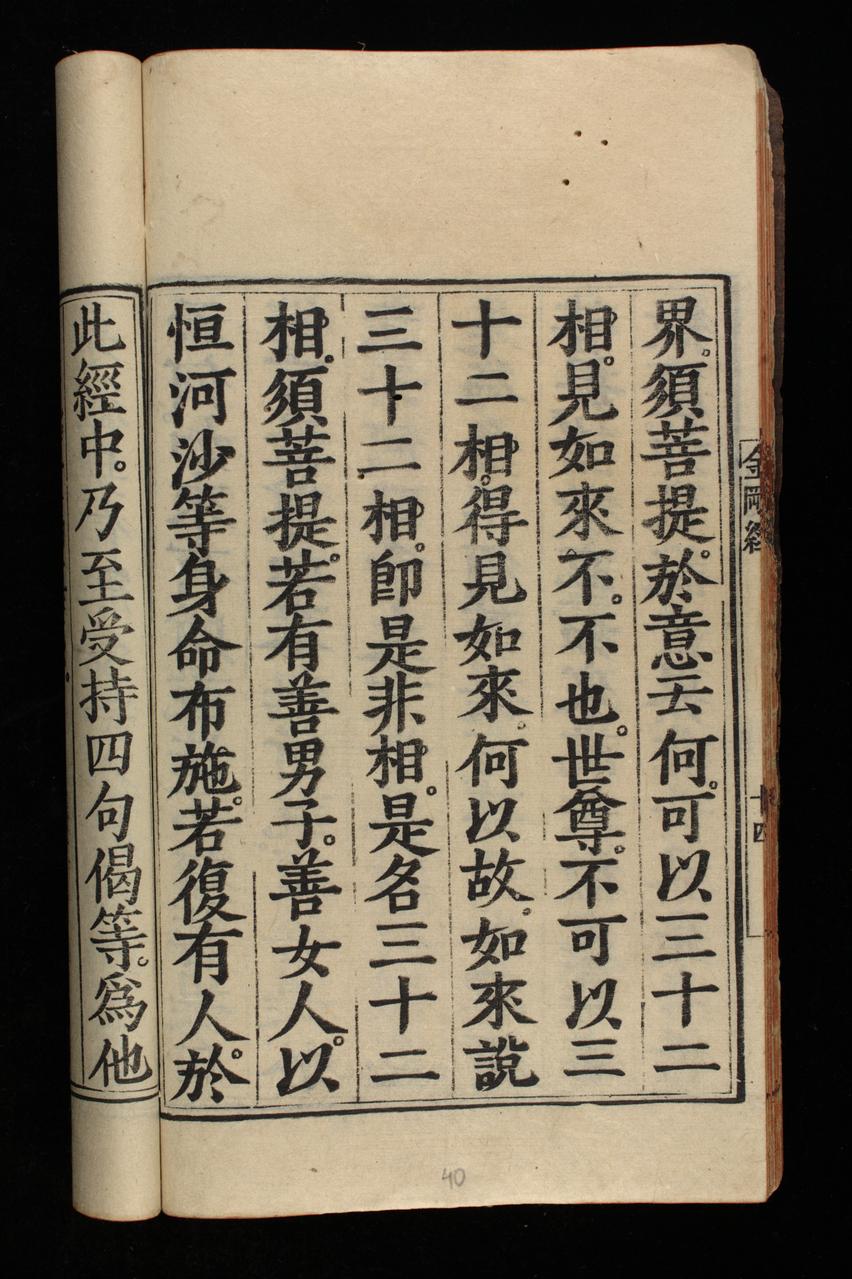 金剛經
十四
界。須菩提。於意云何。可以三十二
相。見如來不。不也。世尊。不可以三
十二相。得見如來。何以故。如來說
三十二相。卽是非相。是名三十二
相。須菩提。若有善男子。善女人。以
恒河沙等身命布施。若復有人。於
此經中。乃至受持四句偈等。爲他
40